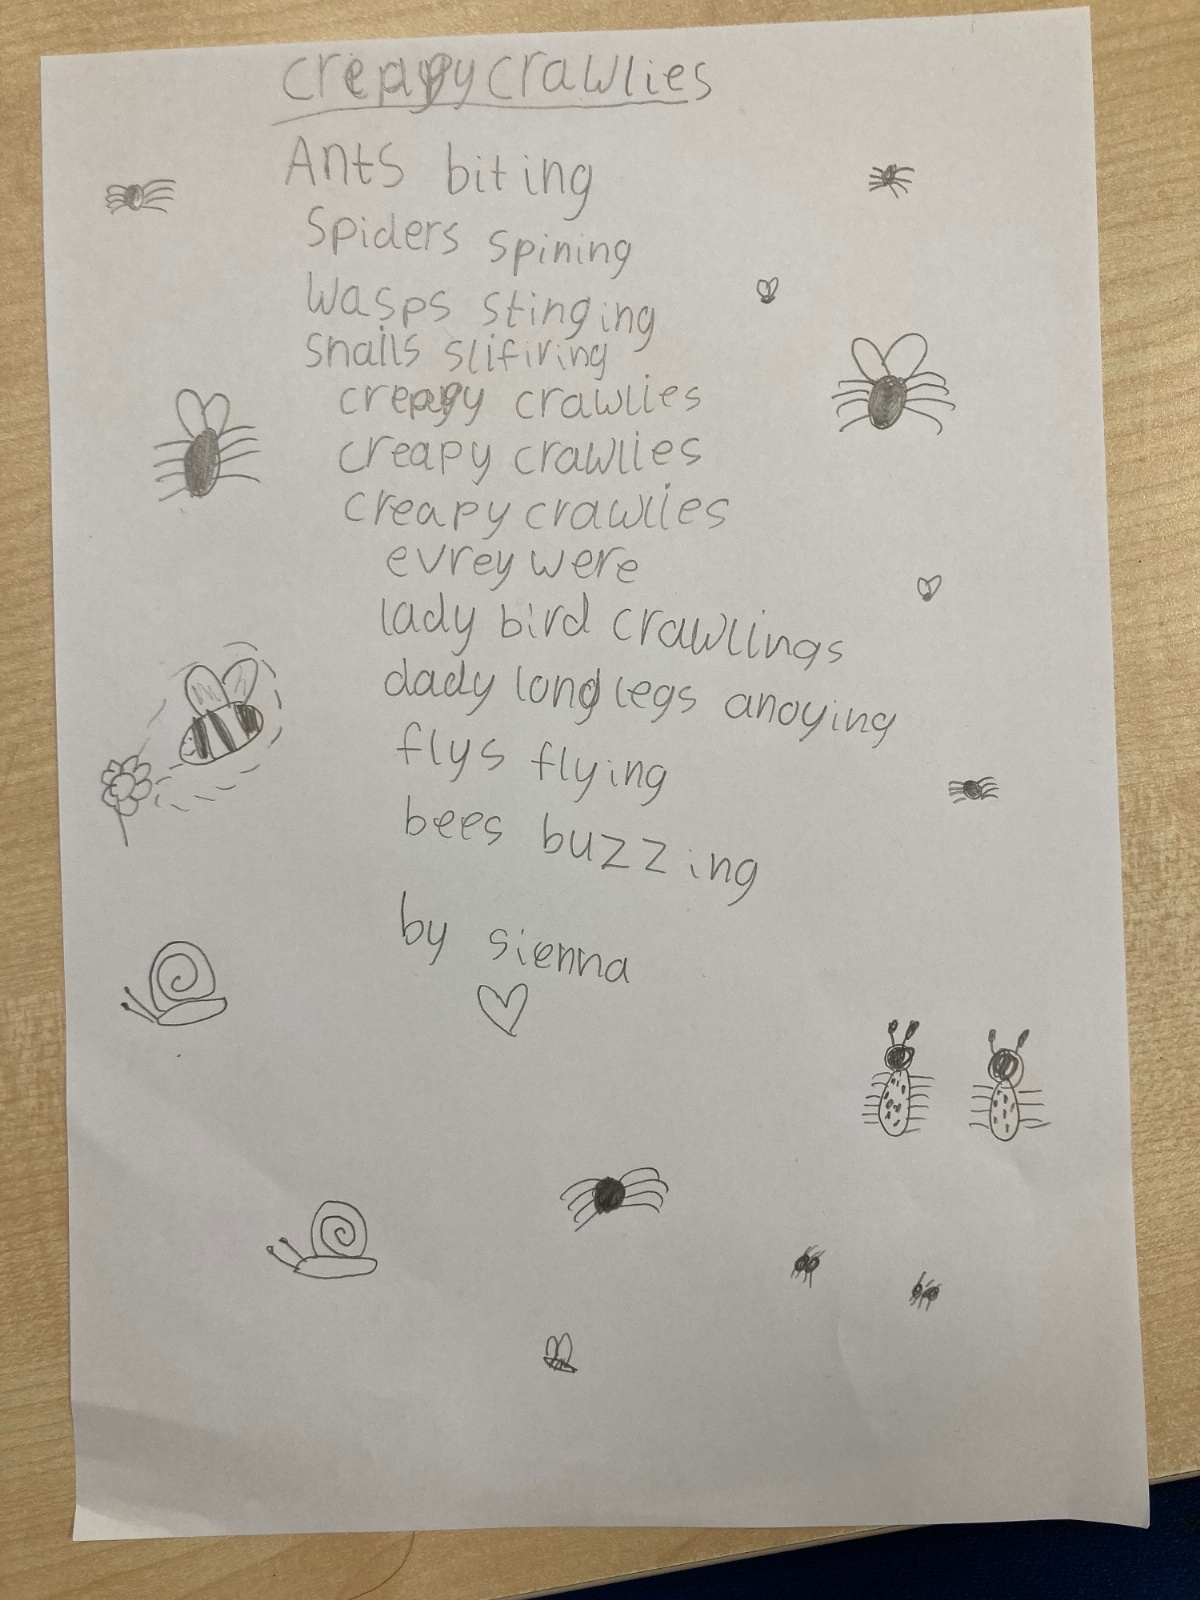 creapy crawlies
Ants biting
Spiders spining
Wasps stinging
snails slifiring
creapy crawlies
creapy crawlies
creapy crawlies
evrey were
lady bird crawlings
dady long legs anoying
flys flying
bees buzzing
by sienna